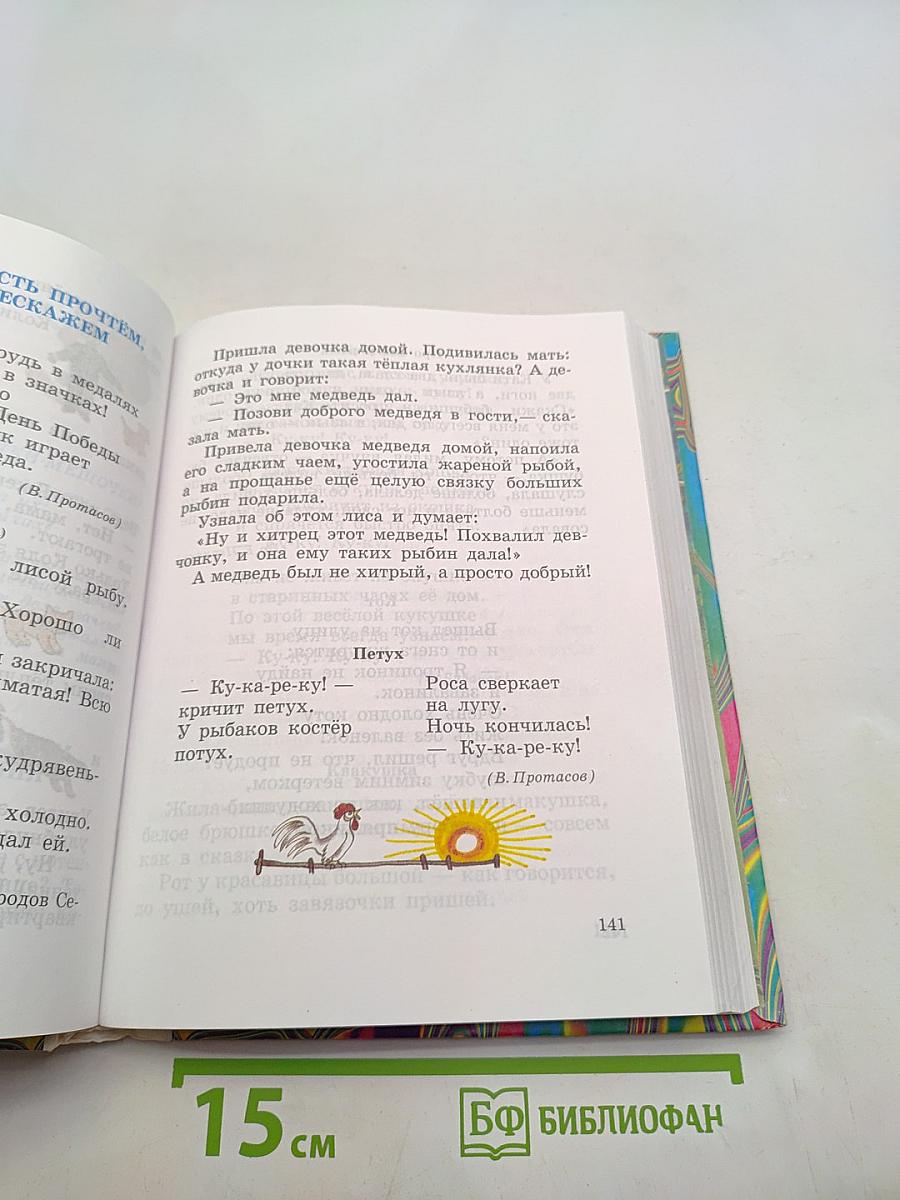 СТЬ ПРОЧТЁМ,
ЕСКАЖЕМ
рудь в медалях
в значках!
День Победы
к играет
еда.
(В. Протасов)
лисой рыбу.
Хорошо ли
закричала:
матая! Всю
кудрявень-
холодно.
дал ей.
родов Се-
Пришла девочка домой. Подивилась мать:
откуда у дочки такая тёплая кухлянка? А де-
вочка и говорит:
— Это мне медведь дал.
— Позови доброго медведя в гости,— ска-
зала мать.
Привела девочка медведя домой, напоила
его сладким чаем, угостила жареной рыбой,
а на прощанье ещё целую связку больших
рыбин подарила.
Узнала об этом лиса и думает:
«Ну и хитрец этот медведь! Похвалил дев-
чонку, и она ему таких рыбин дала!»
А медведь был не хитрый, а просто добрый!
Петух
— Ку-ка-ре-ку! —
кричит петух.
У рыбаков костёр
потух.
Роса сверкает
на лугу.
Ночь кончилась!
— Ку-ка-ре-ку!
(В. Протасов)
141
15 см
БФ БИБЛИОФАН